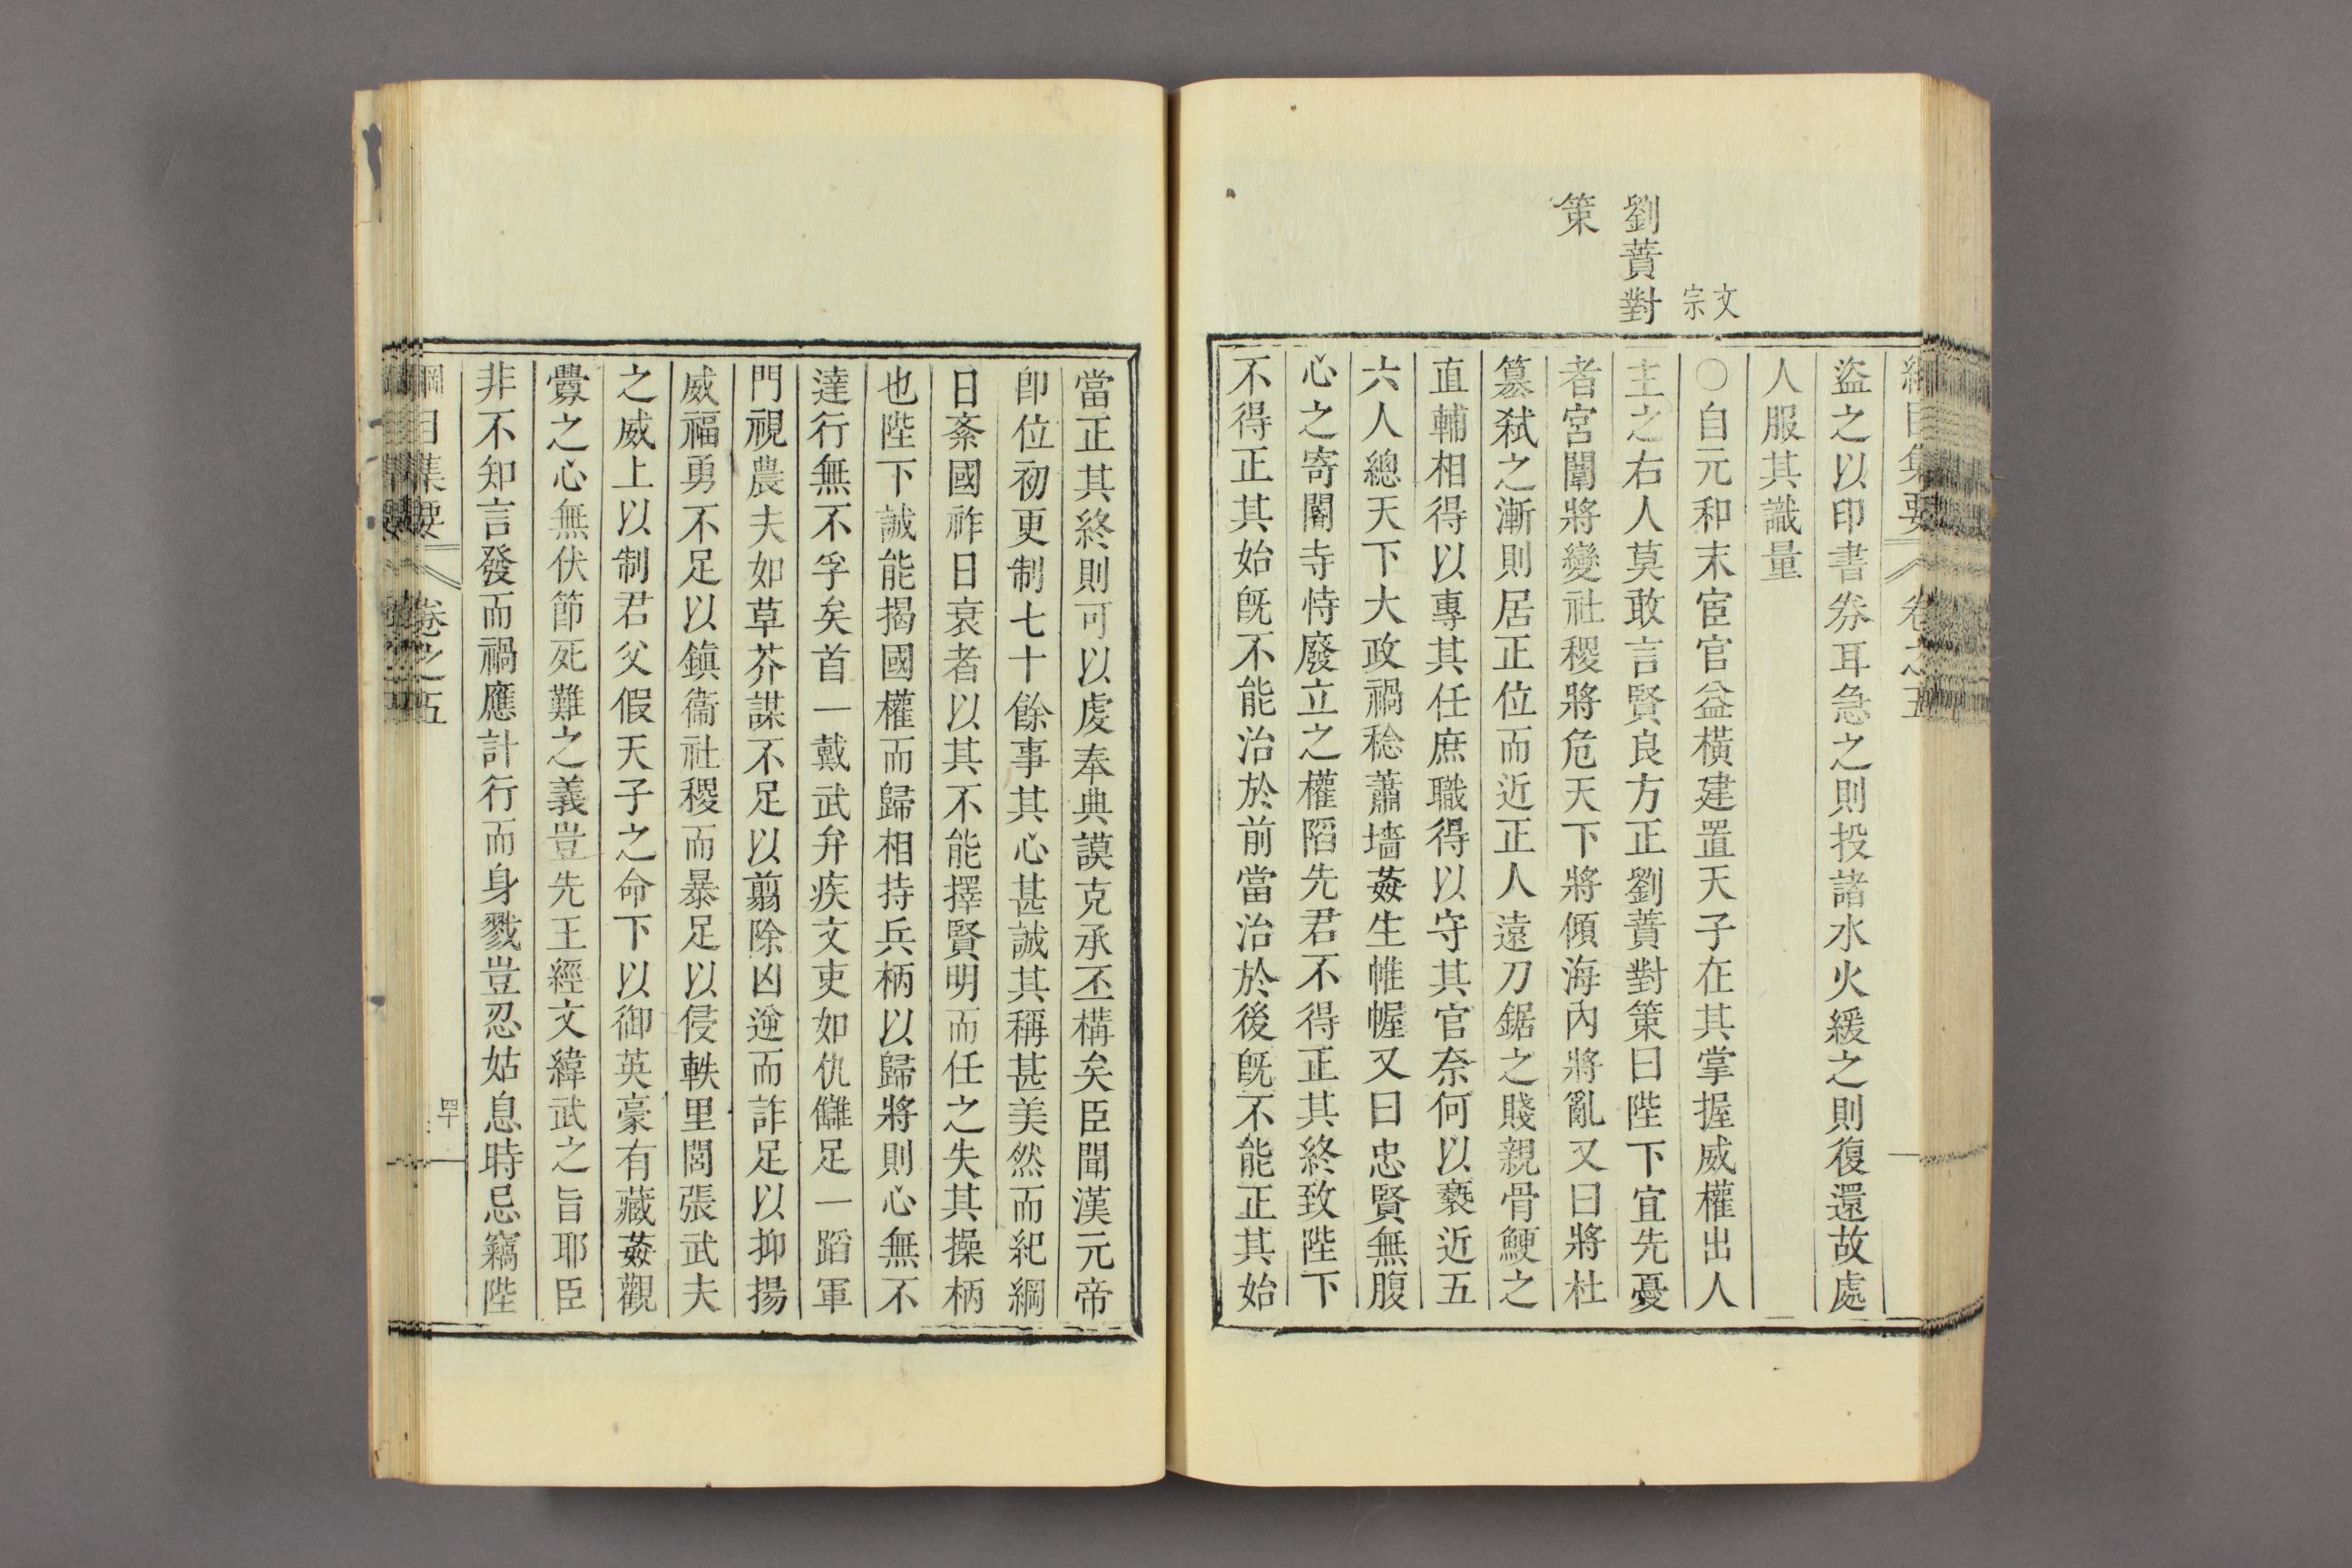 綱目集要 卷之五
盜之以印書券耳急之則投諸水火緩之則復還故處
人服其識量
文宗
○自元和末宦官益橫建置天子在其掌握威權出人
劉蕡對策
主之右人莫敢言賢良方正劉蕡對策曰陛下宜先憂
者宮闈將變社稷將危天下將傾海內將亂又曰將杜
篡弑之漸則居正位而近正人遠刀鋸之賤親骨鯁之
直輔相得以專其任庶職得以守其官奈何以褻近五
六人總天下大政禍稔蕭墻姦生帷幄又曰忠賢無腹
心之寄閽寺恃廢立之權陷先君不得正其終致陛下
不得正其始旣不能治於前當治於後旣不能正其始
當正其終則可以虔奉典謨克承丕構矣臣聞漢元帝
卽位初更制七十餘事其心甚誠其稱甚美然而紀綱
日紊國祚日衰者以其不能擇賢明而任之失其操柄
也陛下誠能揭國權而歸相持兵柄以歸將則心無不
達行無不孚矣首一戴武弁疾文吏如仇讎足一蹈軍
門視農夫如草芥謀不足以翦除凶逆而詐足以抑揚
威福勇不足以鎮衞社稷而暴足以侵軼里閭張武夫
之威上以制君父假天子之命下以御英豪有藏姦觀
釁之心無伏節死難之義豈先王經文緯武之旨耶臣
非不知言發而禍應計行而身戮豈忍姑息時忌竊陛
綱目集要 卷之五 四十